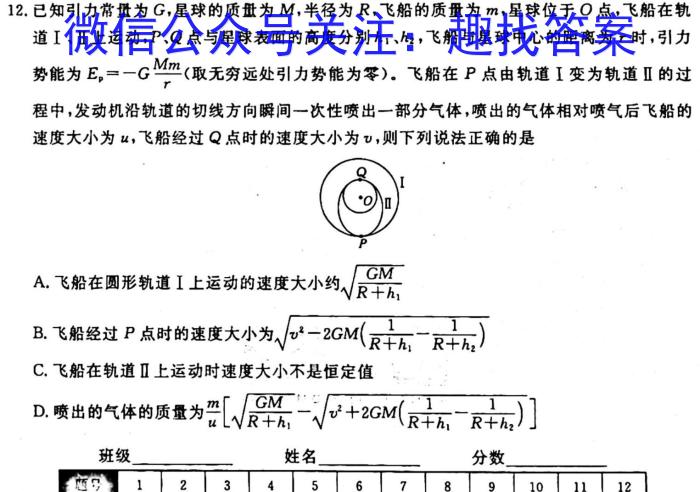 12.已知引力常量为G,星球的质量为M,半径为R,飞船的质量为m,星球位于O点,飞船在轨
道Ⅰ、Ⅱ上运动,P、Q点与星球表面的高度分别h₁、h₂,飞船与星球中心的距离为r时,引力
微信公众号关注：趣找答案
势能为Eₚ=-G\frac{Mm}{r}(取无穷远处引力势能为零)。飞船在P点由轨道Ⅰ变为轨道Ⅱ的过
程中,发动机沿轨道的切线方向瞬间一次性喷出一部分气体,喷出的气体相对喷气后飞船的
速度大小为u,飞船经过Q点时的速度大小为v,则下列说法正确的是
Q
Ⅰ
O
Ⅱ
P
A.飞船在圆形轨道Ⅰ上运动的速度大小约\sqrt{\frac{GM}{R+h₁}}
B.飞船经过P点时的速度大小为\sqrt{v²-2GM(\frac{1}{R+h₁}-\frac{1}{R+h₂})}
C.飞船在轨道Ⅱ上运动时速度大小不是恒定值
D.喷出的气体的质量为\frac{m}{u}[\sqrt{\frac{GM}{R+h₁}}-\sqrt{v²+2GM(\frac{1}{R+h₁}-\frac{1}{R+h₂})}]
班级 姓名 分数
题号 1 2 3 4 5 6 7 8 9 10 11 12